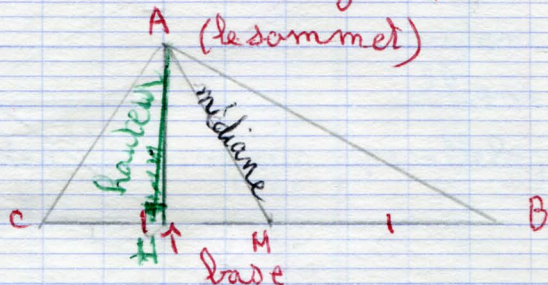 A
(le sommet)
hauteur
médiane
C
H
M
B
base